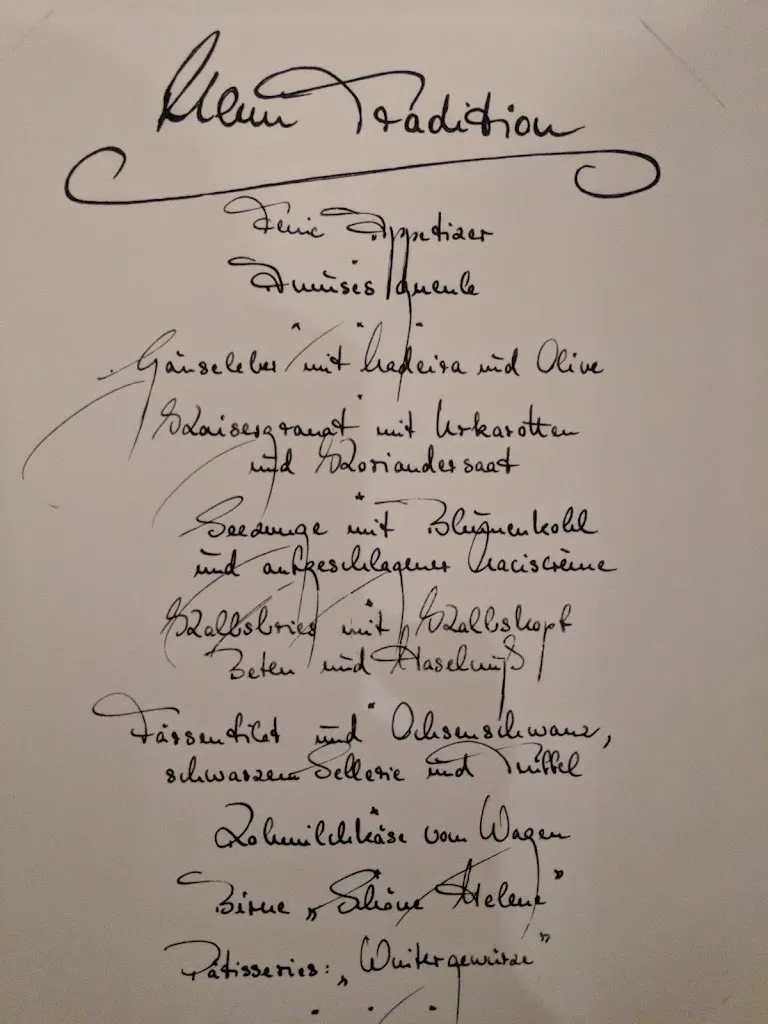 Menu Tradition
Feine Appetizer
Amuses gueule
Gänseleber mit Madeira und Olive
Kaisergranat mit Urkarotten
und Koriandersaat
*
Seezunge mit Blumenkohl
und aufgeschlagener Maciscrème
*
Kalbsbries mit Kalbskopf
Beten und Haselnuß
Färsenfilet und Ochsenschwanz,
schwarzem Sellerie und Trüffel
*
Rohmilchkäse vom Wagen
*
Birne „Schöne Helene"
Pâtisseries: „Wintergewürze"